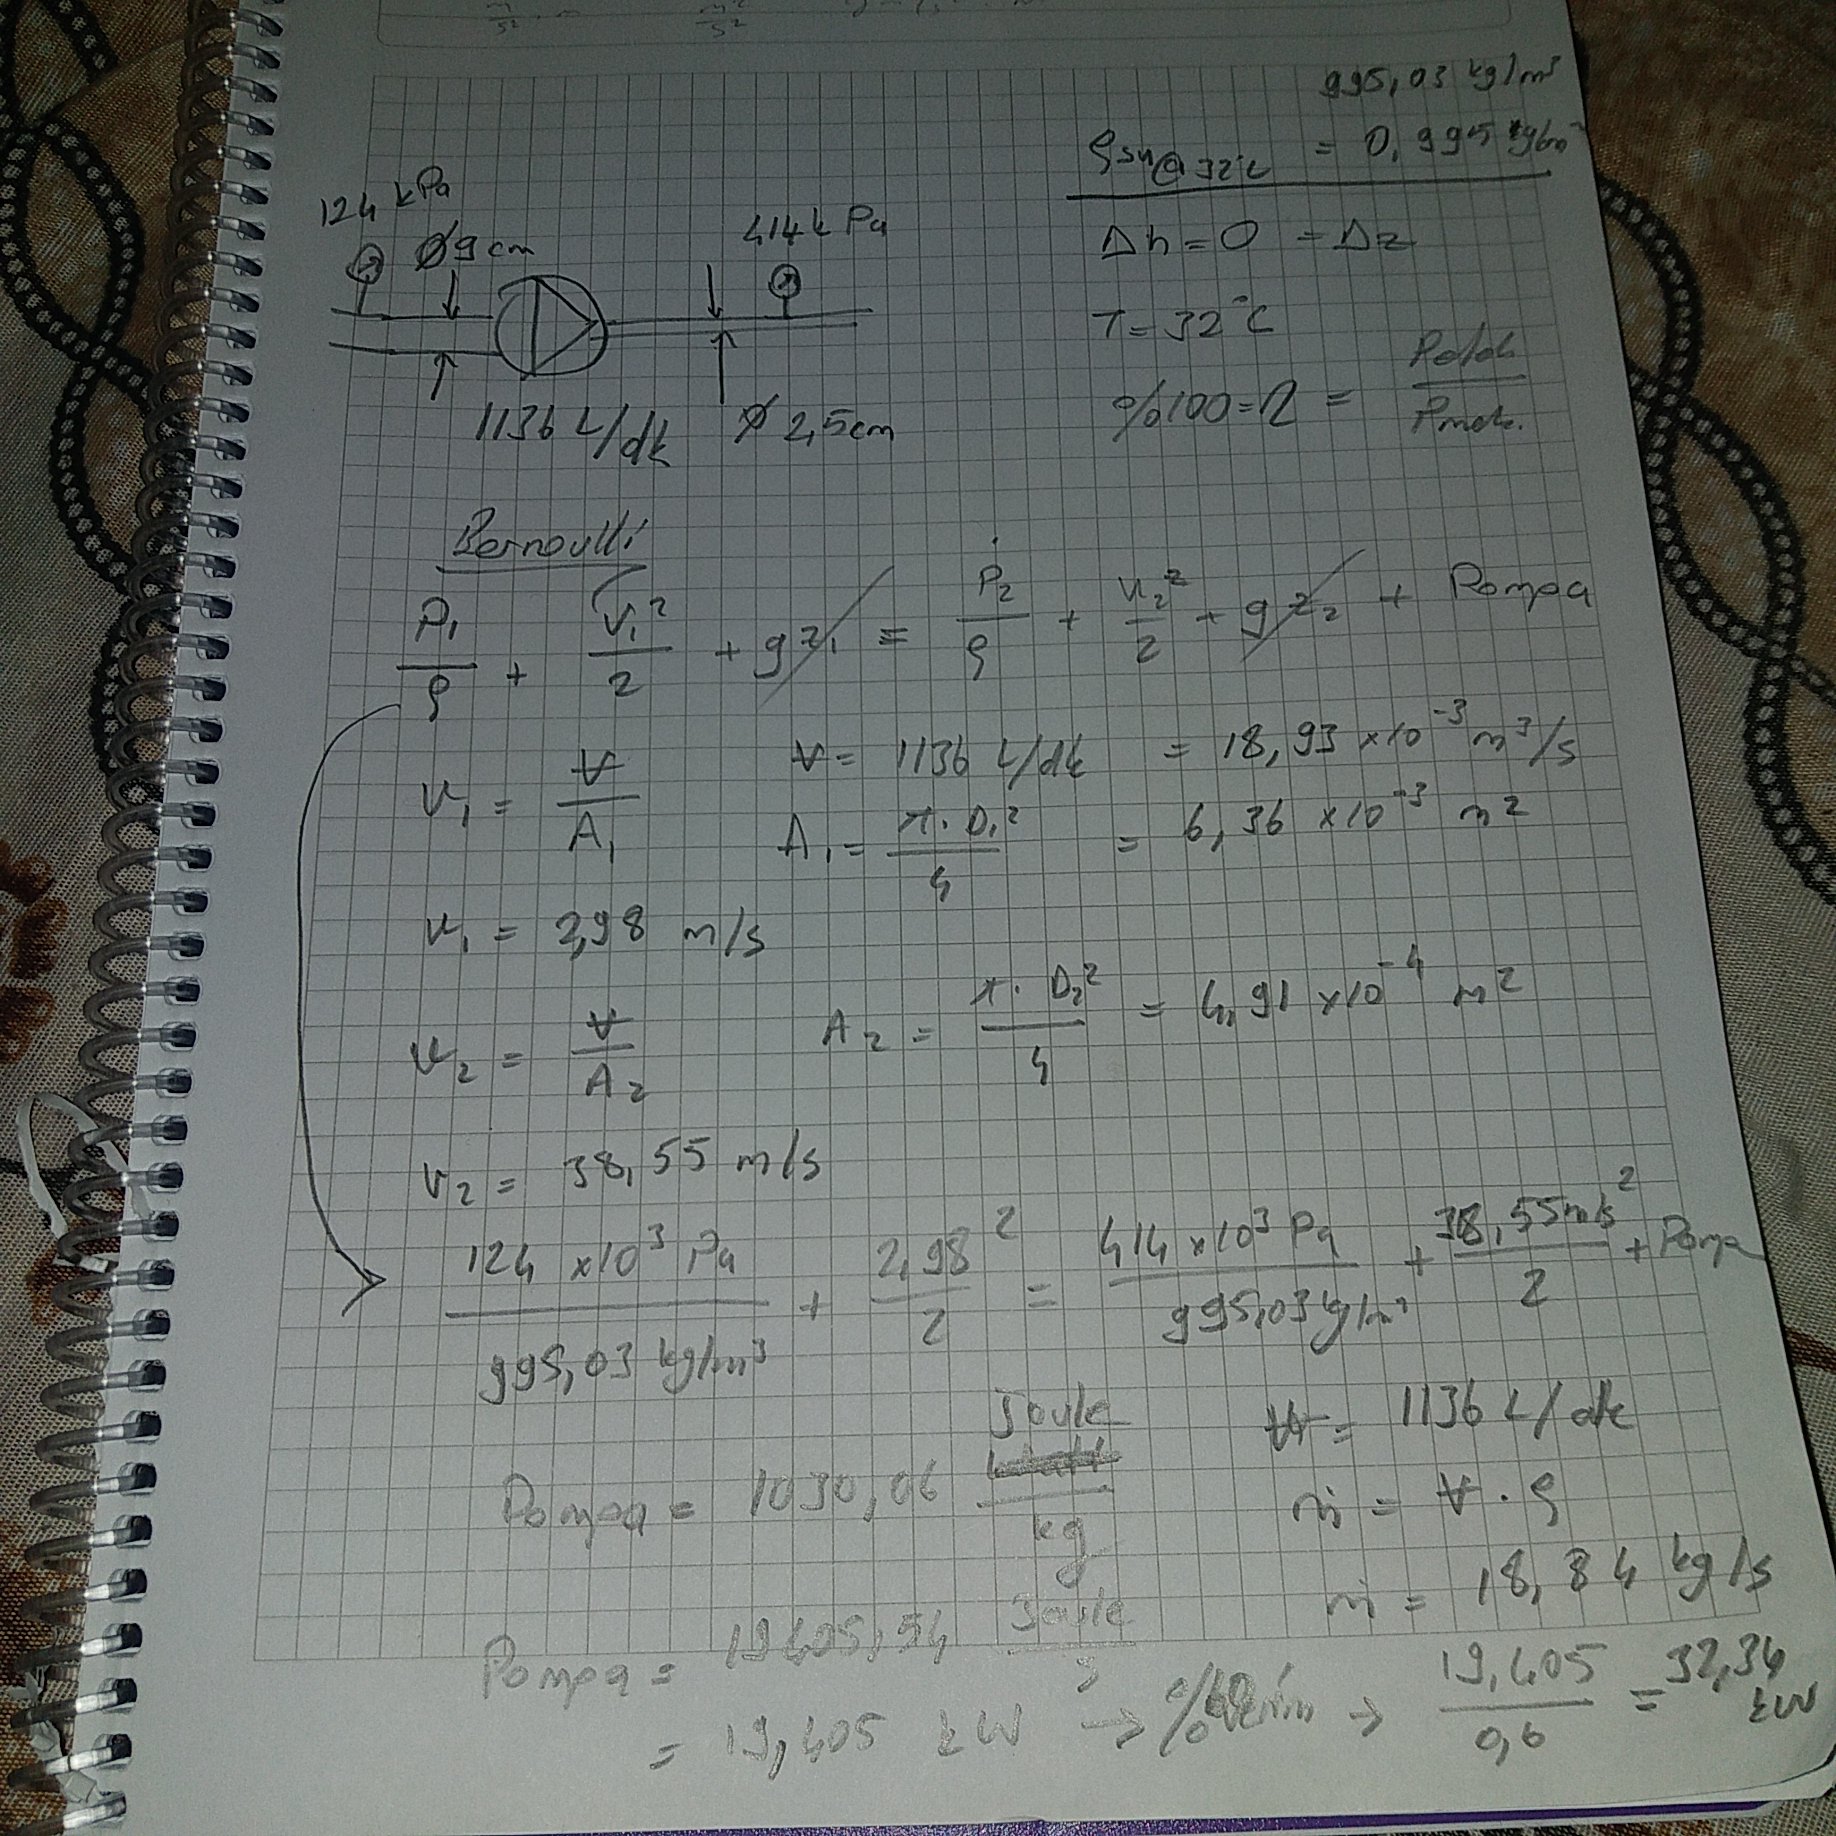 995,03 kg/m³
ρsu@32°C = 0,995 kg/m³
124 kPa
Ø9cm
414k Pa
Δh = 0 = Δz
T = 32°C
1136 L/dk
Ø 2,5cm
%100 = η =
Bernoulli
P₁/ρ + V₁²/2 + gz₁ = P₂/ρ + V₂²/2 + gz₂ + Pompa
V₁ = V/A₁
V = 1136 L/dk = 18,93 x10⁻³ m³/s
A₁ = π.D₁²/4 = 6,36 x10⁻³ m²
V₁ = 2,98 m/s
V₂ = V/A₂
A₂ = π.D₂²/4 = 4,91 x10⁻⁴ m²
V₂ = 38,55 m/s
124 x10³ Pa/995,03 kg/m³ + 2,98²/2 = 414 x10³ Pa/995,03 kg/m³ + 38,55m/s²/2 + Pompa
Pompa = 1030,06 Joule/kg
V = 1136 L/dk
ṁ = V.ρ
ṁ = 18,84 kg/s
Pompa = 19405,54 Joule/s
= 19,405 kW → → 19,405/0,6 = 32,34 kW